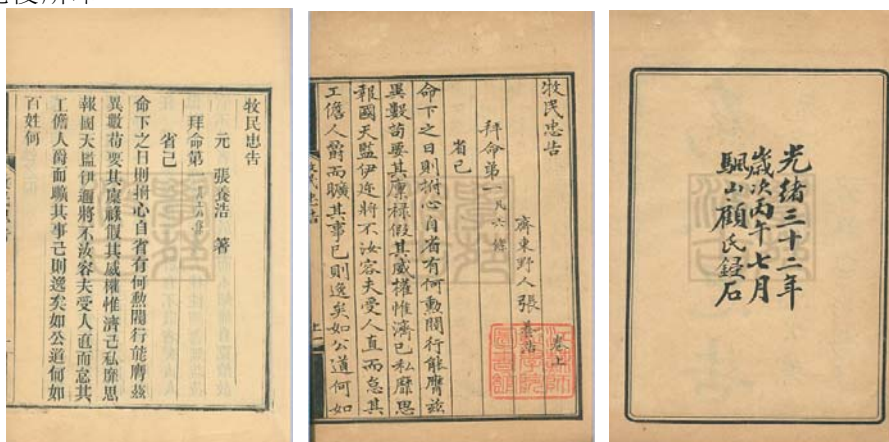 牧民忠告
元 張養浩 著
拜命第一凡六條
省己
命下之日則拊心自省有何勲閥行能膺茲
異數苟要其廩祿假其威權惟濟己私靡思
報國天監伊邇將不汝容夫受人直而怠其
工儋人爵而曠其事己則逸矣如公道何如
百姓何
牧民忠告
卷上
齊東野人張養浩
拜命第一凡六條
省己
命下之日則拊心自省有何勲閥行能膺茲
異數苟要其廩祿假其威權惟濟己私靡思
報國天監伊邇將不汝容夫受人直而怠其
工儋人爵而曠其事己則逸矣如公道何如
牧民忠告
上
光緒三十二年
歲次丙午七月
颿山顧氏録石